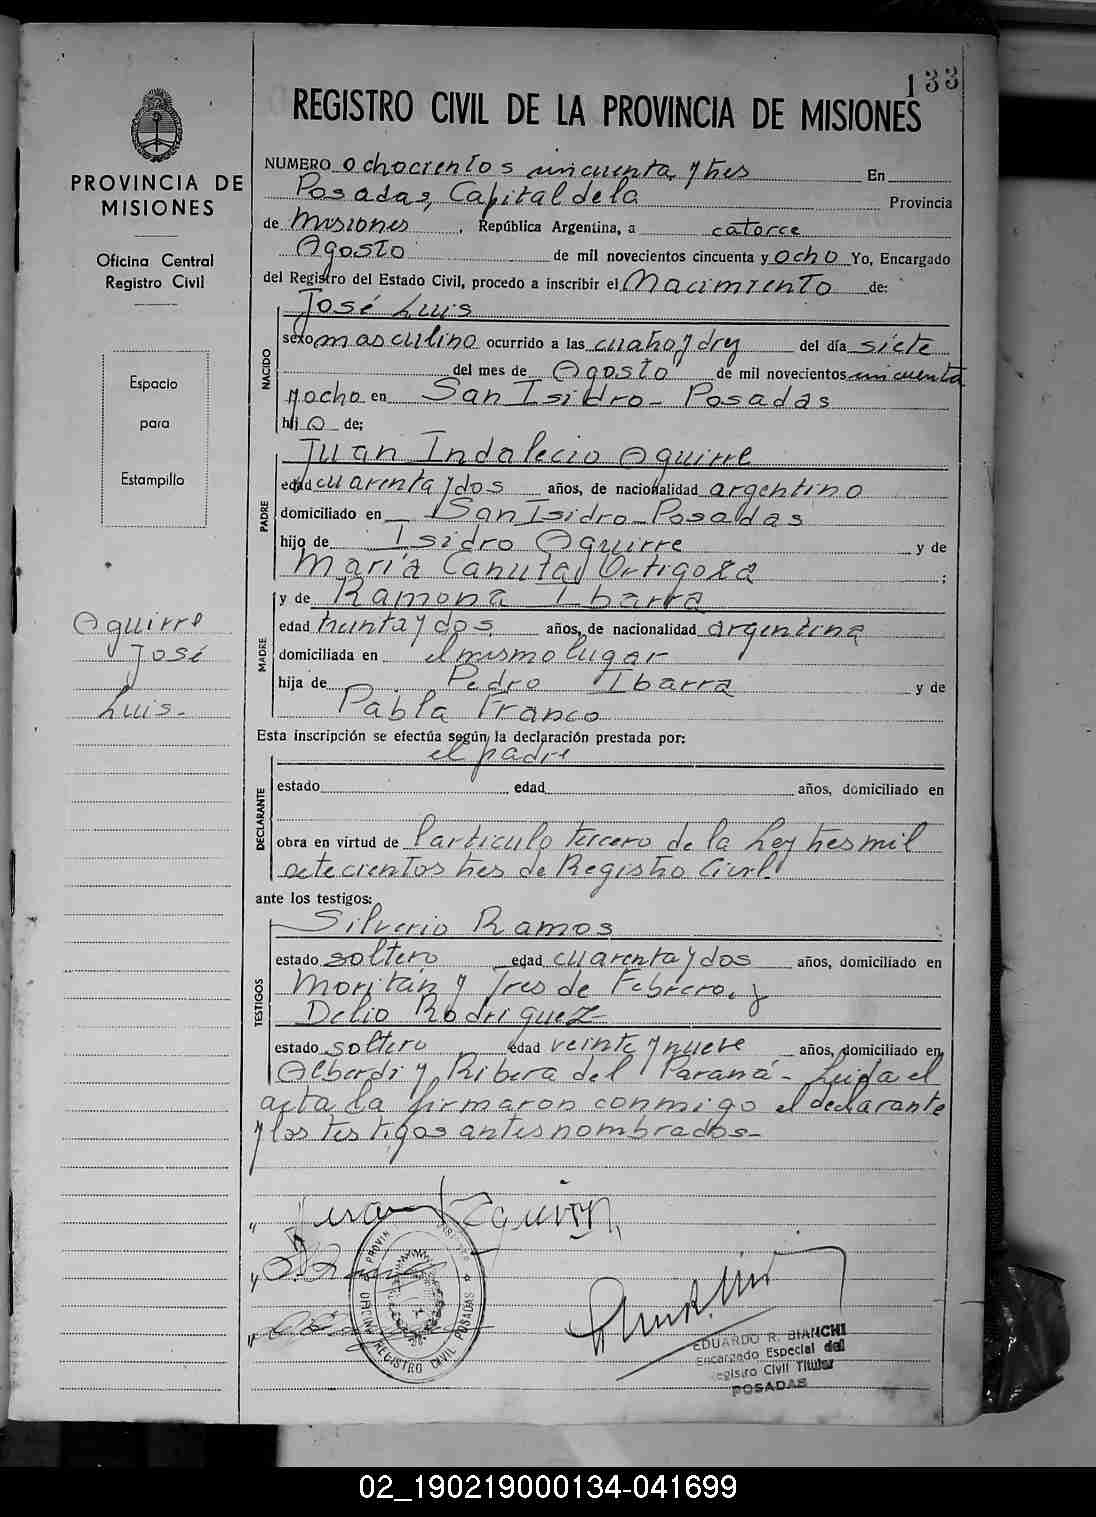 133
REGISTRO CIVIL DE LA PROVINCIA DE MISIONES
PROVINCIA DE
MISIONES
Oficina Central
Registro Civil
Espacio
para
Estampillo
Aguirre
José
Luis.-
NUMERO ochocientos cincuenta y tres En
Posadas, Capital de la Provincia
de Misiones, República Argentina, a catorce
Agosto de mil novecientos cincuenta y ocho Yo, Encargado
del Registro del Estado Civil, procedo a inscribir el Nacimiento de:
NACIDO
José Luis
sexo masculino ocurrido a las cuatro y diez del día siete
del mes de Agosto de mil novecientos cincuenta
y ocho en San Isidro - Posadas
hijo de:
PADRE
Juan Indalecio Aguirre
edad cuarenta y dos años, de nacionalidad argentino
domiciliado en San Isidro - Posadas
hijo de Isidro Aguirre y de
María Canuta Ortigoza ;
MADRE
y de Ramona Ibarra
edad treinta y dos años, de nacionalidad argentina
domiciliada en el mismo lugar
hija de Pedro Ibarra y de
Pabla Franco
Esta inscripción se efectúa según la declaración prestada por:
DECLARANTE
el padre
estado edad años, domiciliado en
obra en virtud de l'artículo tercero de la Ley tres mil
setecientos tres de Registro Civil.
ante los testigos:
TESTIGOS
Silverio Ramos
estado soltero edad cuarenta y dos años, domiciliado en
Moritán y Tres de Febrero, y
Delio Rodriguez-
estado soltero edad veinte y nueve años, domiciliado en
Alberdi y Ribera del Paraná - Leida el
acta la firmaron conmigo el declarante
y los testigos antes nombrados-
OFICINA REGISTRO CIVIL POSADAS
EDUARDO R. BIANCHI
Encargado Especial del
Registro Civil Titular
POSADAS
02_190219000134-041699